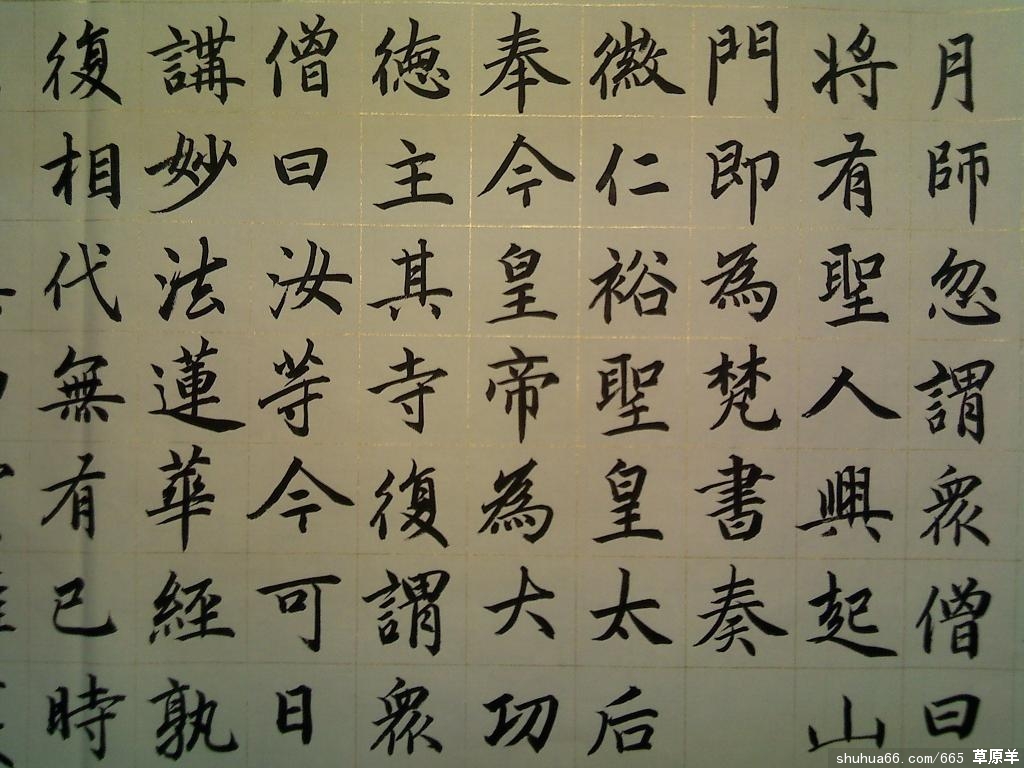 月師忽謂衆僧曰
將有聖人興起山
門即為梵書奏
徽仁裕聖皇太后
奉今皇帝為大功
德主其寺復謂衆
僧曰汝等今可日
講妙法蓮華經孰
復相代無有已時
shuhua66.com/665 草原羊